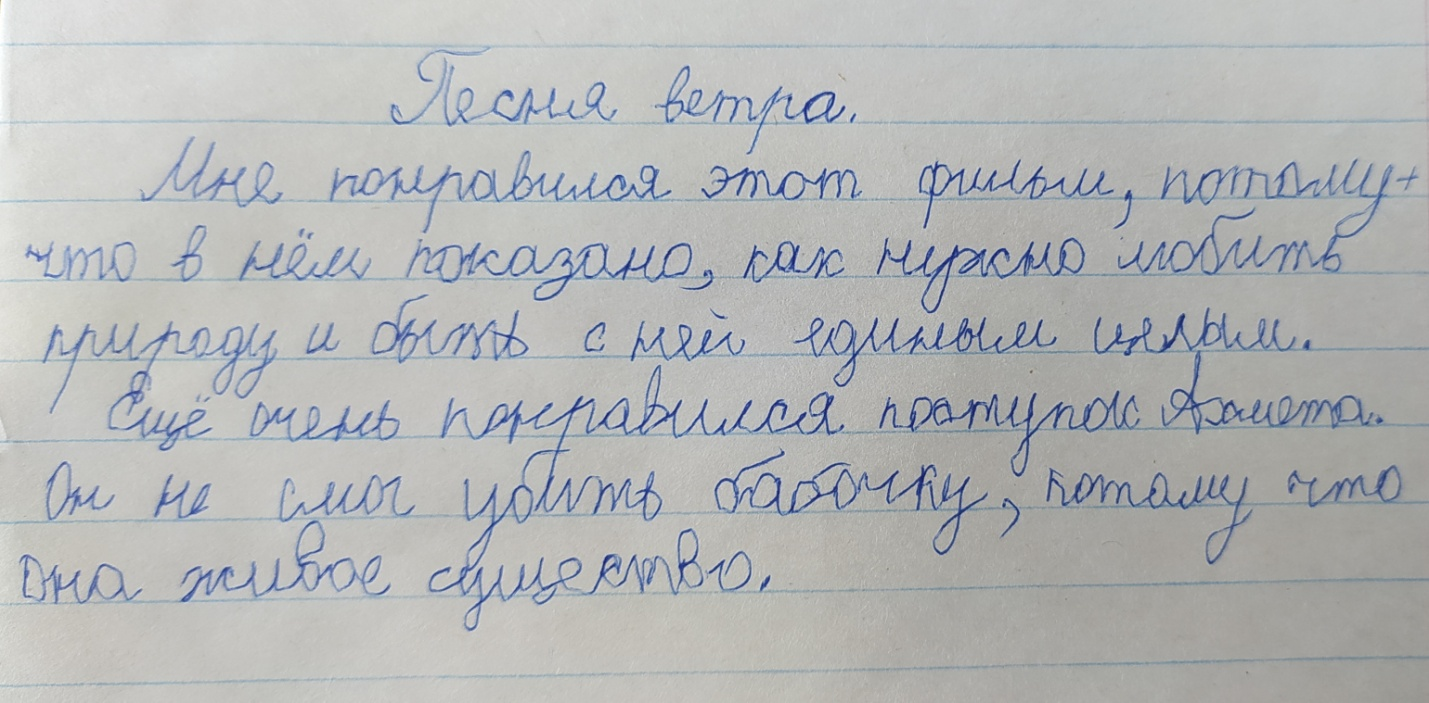 Песня ветра.
Мне понравился этот фильм, потому+
что в нём показано, как нужно любить
природу и быть с ней единым целым.
Ещё очень понравился поступок Ахмета.
Он не смог убить бабочку, потому что
она живое существо.